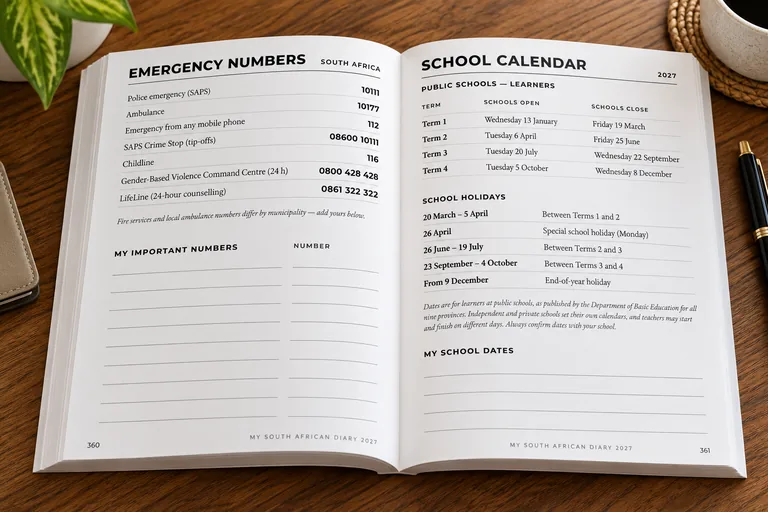 EMERGENCY NUMBERS SOUTH AFRICA
Police emergency (SAPS) 10111
Ambulance 10177
Emergency from any mobile phone 112
SAPS Crime Stop (tip-offs) 08600 10111
Childline 116
Gender-Based Violence Command Centre (24 h) 0800 428 428
LifeLine (24-hour counselling) 0861 322 322
Fire services and local ambulance numbers differ by municipality — add yours below.
MY IMPORTANT NUMBERS NUMBER
360 MY SOUTH AFRICAN DIARY 2027
SCHOOL CALENDAR 2027
PUBLIC SCHOOLS — LEARNERS
TERM SCHOOLS OPEN SCHOOLS CLOSE
Term 1 Wednesday 13 January Friday 19 March
Term 2 Tuesday 6 April Friday 25 June
Term 3 Tuesday 20 July Wednesday 22 September
Term 4 Tuesday 5 October Wednesday 8 December
SCHOOL HOLIDAYS
20 March – 5 April Between Terms 1 and 2
26 April Special school holiday (Monday)
26 June – 19 July Between Terms 2 and 3
23 September – 4 October Between Terms 3 and 4
From 9 December End-of-year holiday
Dates are for learners at public schools, as published by the Department of Basic Education for all
nine provinces. Independent and private schools set their own calendars, and teachers may start
and finish on different days. Always confirm dates with your school.
MY SCHOOL DATES
MY SOUTH AFRICAN DIARY 2027 361